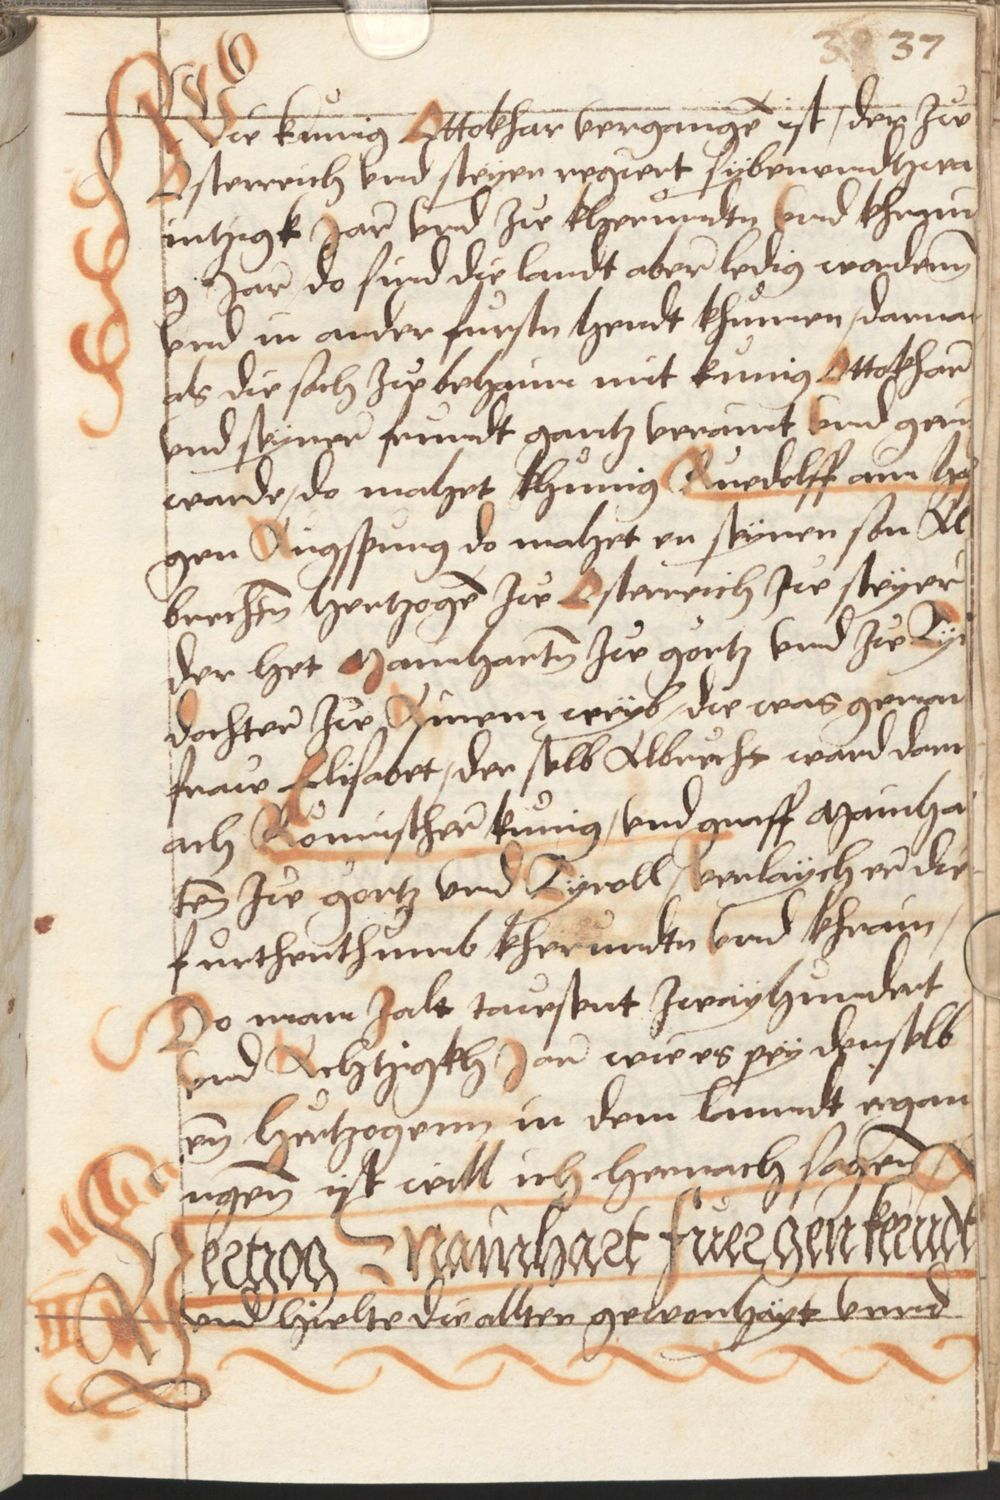 37
Wie kunig Ottokhar vergangē ist / der Zw
Osterreich vnd steyer regiert sybenvndtzwa
intzigk Jar vnd Zw kherundtn vnd khrain
9 Jar do sind die landt aber ledig wordenn
vnd in ander furstn hendt khumen / darna
als die sach Zw behaim mit kunig Ottokhar
vnd seyner frundt gantz veraint vnd geri
warde / do machet khunig Ruedolff ain hof
gen Augspurg do machet er seynen son Al
brechtn hertzogē Zw Osterreich Zw steyer
der het Mainhartn Zw gortz vnd Zw Tyr
dochter Zw Ainem weyb / die was genan
fraw Elisabet / der selb Albrecht ward darn
ach Romischer kunig / vnd graff Mainha
ten Zw gortz vnd Tyroll / verlaych er die
furthenthumb kherundtn vnd khrain /
Do man Zalt tausent Zwayhundert
vnd Achtzigkh Jar wie es pey denselb
en hertzogenn in dem lanndt ergan
ngen ist will ich hernach sagen
Hertzog Mainhart fuer gen kerndt
vnd hielte die allten gewonhayt vnnd